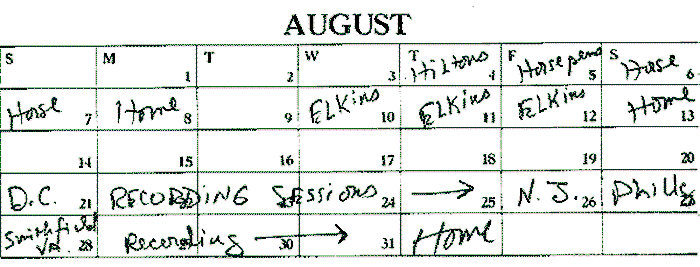 AUGUST
S M T W T F S
1 2 Hiltons 3 4 Horse pens 5 Horse 6
Horse 7 Home 8 9 ELKins 10 ELKins 11 ELKins 12 Home 13
14 15 16 17 18 19 20
D.C. 21 RECORDING SESSIONS 24 → 25 N.J. 26 Philly
Smithfield VA. 28 Recording 30 → 31 Home